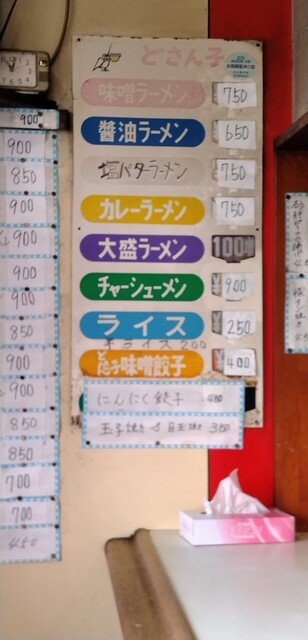 どさん子
味噌ラーメン 750
醬油ラーメン 650
塩バターラーメン 750
カレーラーメン 750
大盛ラーメン 100増
チャーシューメン ¥900
ライス ¥250
半ライス 200
どさん子味噌餃子 ¥400
にんにく餃子 450
玉子焼き 目玉焼 300
900
900
850
900
900
900
900
850
900
900
850
850
700
700
450